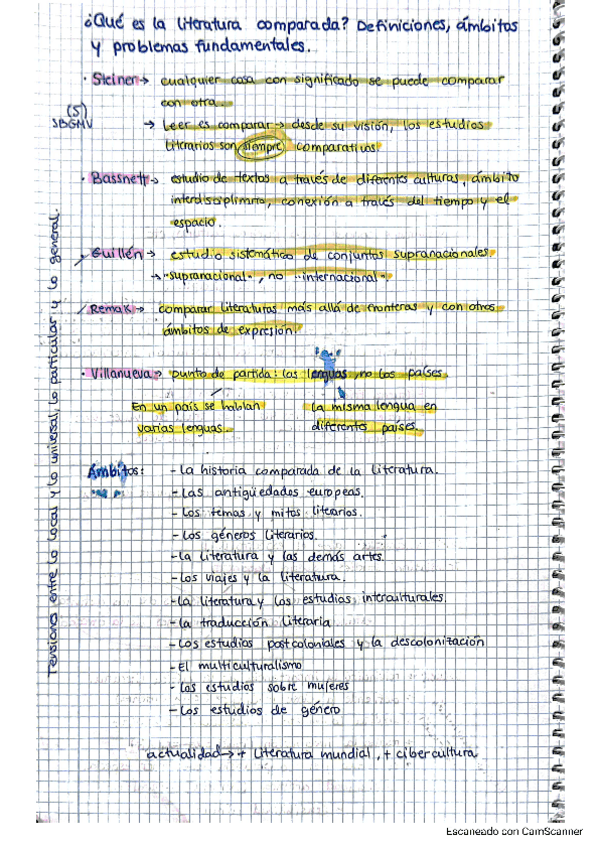 ¿Qué es la literatura comparada? Definiciones, ámbitos
y problemas fundamentales.
· Steiner → cualquier cosa con significado se puede comparar
con otra...
(5)
SBGMV
→ Leer es comparar → desde su visión, los estudios
literarios son siempre comparativos.
· Bassnett → estudio de textos a través de diferentes culturas, ámbito
interdisciplinario, conexión a través del tiempo y el
espacio.
· Guillén → estudio sistemático de conjuntos supranacionales.
→ "supranacional", no "internacional".
· Remak → comparar literaturas más allá de fronteras y con otros
ámbitos de expresión.
· Villanueva → punto de partida: las lenguas, no los países.
En un país se hablan
varias lenguas.
La misma lengua en
diferentes países.
Tensiones entre lo local y lo universal, lo particular y lo general.
Ámbitos:
- La historia comparada de la literatura.
- Las antigüedades europeas.
- Los temas y mitos literarios.
- Los géneros literarios.
- La literatura y las demás artes.
- Los viajes y la literatura.
- La literatura y los estudios interculturales.
- La traducción literaria
- Los estudios postcoloniales y la descolonización
- El multiculturalismo
- Los estudios sobre mujeres
- Los estudios de género
actualidad → + literatura mundial, + cibercultura
Escaneado con CamScanner